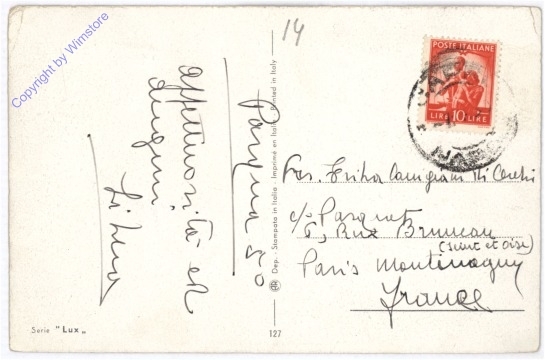 Copyright by Wimstore
14
POSTE ITALIANE
LIRE 10 LIRE
Pasqua 50
affettuosità ed
auguri
Dep. - Stampato in Italia - Imprimé en Italie - Printed in Italy
c/o Parquet
5, Rue Bruneau
(Seine et Oise)
Paris Montmagny
France
Serie "Lux"
127